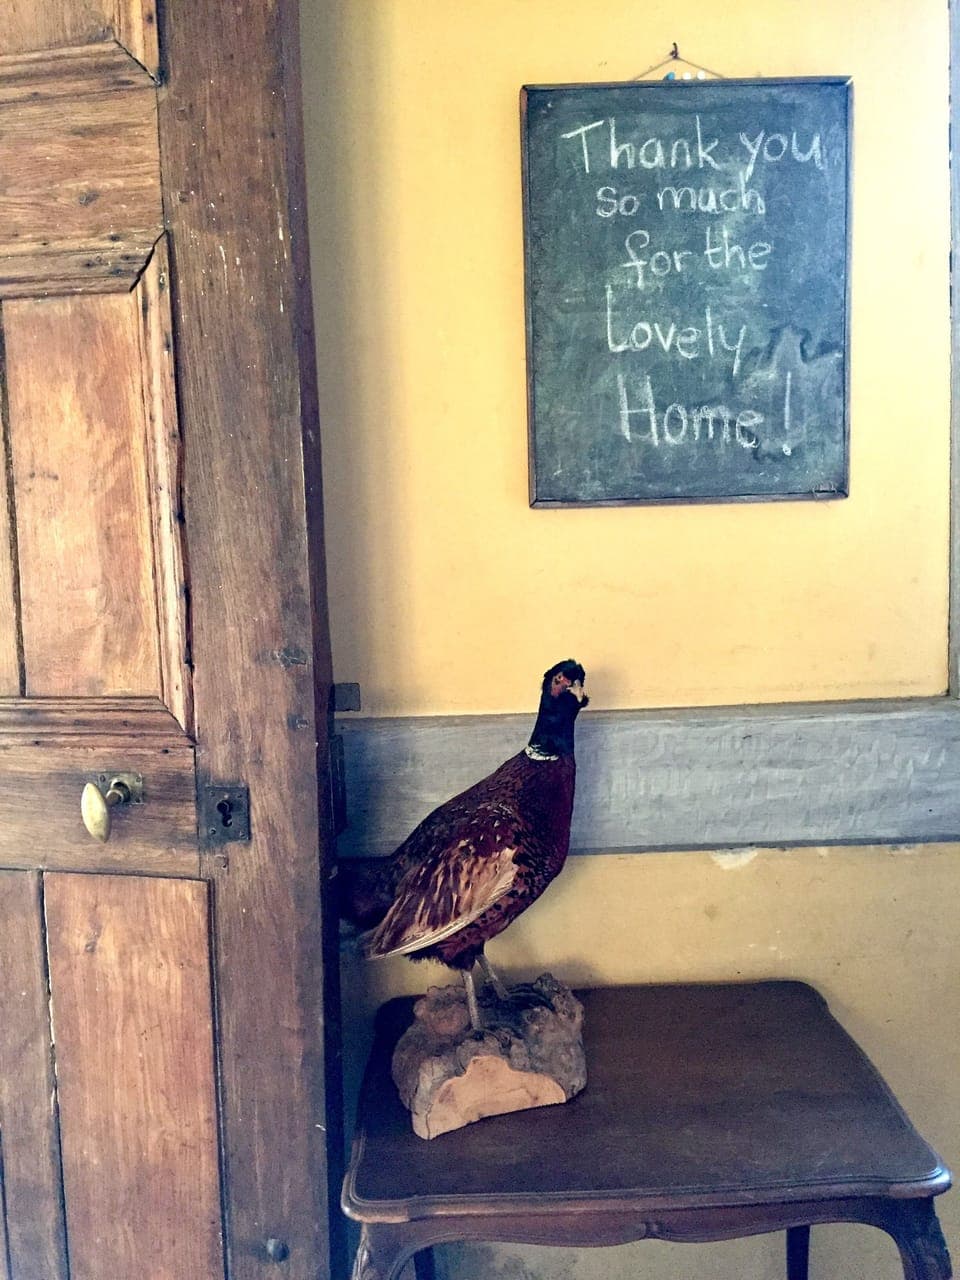 Thank you
so much
for the
Lovely
Home!